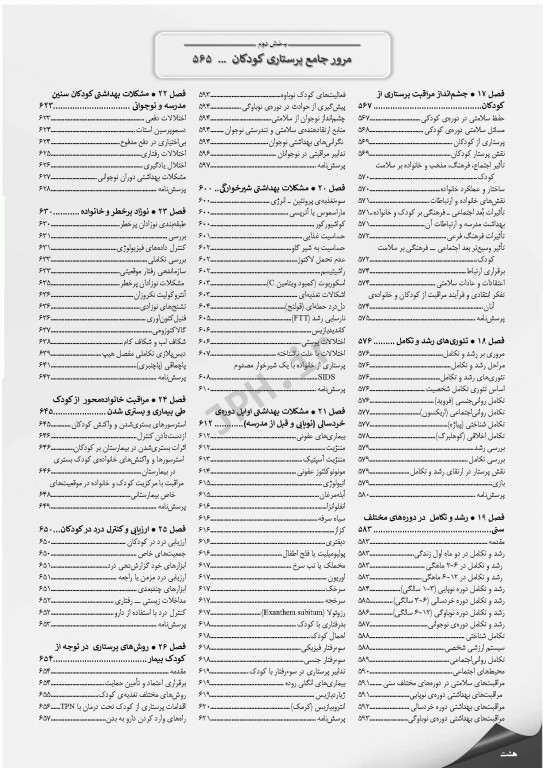 بخش دوم
مرور جامع پرستاری کودکان ... ۵۶۵
فصل ۱۷ • چشم‌انداز مراقبت پرستاری از
کودکان ... ۵۶۷
حفظ سلامتی در دوره‌ی کودکی ... ۵۶۷
مسائل سلامتی در دوره‌ی کودکی ... ۵۶۸
پرستاری از کودکان ... ۵۶۹
نقش پرستار کودکان ... ۵۶۹
تأثیر اجتماع، فرهنگ، مذهب و خانواده بر سلامت
کودک ... ۵۷۰
ساختار و عملکرد خانواده ... ۵۷۰
نقش‌های خانواده و ارتباطات ... ۵۷۱
تأثیرات بُعد اجتماعی ـ فرهنگی بر کودک و خانواده ... ۵۷۱
بهداشت مدرسه و ارتباطات آن ... ۵۷۱
تأثیرات فرهنگ فرعی ... ۵۷۲
تأثیر وسیع‌تر بعد اجتماعی ـ فرهنگی بر سلامت
کودک ... ۵۷۲
برقراری ارتباط ... ۵۷۴
اعتقادات و عادات سلامتی ... ۵۷۴
تفکر انتقادی و فرآیند مراقبت از کودکان و خانواده‌ی
آنان ... ۵۷۴
پرسش‌نامه ... ۵۷۵
فصل ۱۸ • تئوری‌های رشد و تکامل ... ۵۷۶
مروری بر رشد و تکامل ... ۵۷۶
مراحل رشد و تکامل ... ۵۷۶
تئوری‌های رشد و تکامل ... ۵۷۶
اساس تئوری تکامل شخصیت ... ۵۷۶
تکامل روانی‌جنسی (فروید) ... ۵۷۶
تکامل روانی‌اجتماعی (اریکسون) ... ۵۷۷
تکامل شناختی (پیاژه) ... ۵۷۷
تکامل اخلاقی (کوهلبرگ) ... ۵۷۸
بررسی رشد ... ۵۷۹
بررسی تکامل ... ۵۷۹
نقش پرستار در ارتقای رشد و تکامل ... ۵۷۹
بازی ... ۵۷۹
پرسش‌نامه ... ۵۸۰
فصل ۱۹ • رشد و تکامل در دوره‌های مختلف
سنی ... ۵۸۳
مقدمه ... ۵۸۳
رشد و تکامل در دو ماه اول زندگی ... ۵۸۳
رشد و تکامل در ۶-۲ ماهگی ... ۵۸۳
رشد و تکامل در ۱۲-۶ ماهگی ... ۵۸۳
رشد و تکامل دوره نوپایی (۳-۱ سالگی) ... ۵۸۴
رشد و تکامل دوره خردسالی (۶-۳ سالگی) ... ۵۸۵
رشد و تکامل دوره نوباوگی (۱۲-۶ سالگی) ... ۵۸۶
رشد و تکامل دوره‌ی نوجوانی ... ۵۸۷
تکامل شناختی ... ۵۸۸
سیستم ارزشی شخصی ... ۵۸۸
تکامل روانی‌اجتماعی ... ۵۸۹
محیط‌های اجتماعی ... ۵۹۰
مراقبت‌های سلامتی در دوره‌های مختلف سنی ... ۵۹۱
مراقبت‌های بهداشتی دوره‌ی نوپایی ... ۵۹۱
مراقبت‌های بهداشتی دوره خردسالی ... ۵۹۲
مراقبت‌های بهداشتی دوره‌ی نوباوگی ... ۵۹۳
فعالیت‌های کودک نوباوه ... ۵۹۳
پیش‌گیری از حوادث در دوره‌ی نوباوگی ... ۵۹۴
چشم‌انداز نوجوان از سلامتی ... ۵۹۴
منابع ارتقادهنده‌ی سلامتی و تندرستی نوجوان ... ۵۹۴
نگرانی‌های بهداشتی نوجوان ... ۵۹۴
تدابیر مراقبتی در نوجوانان ... ۵۹۶
پرسش‌نامه ... ۵۹۷
فصل ۲۰ • مشکلات بهداشتی شیرخوارگی ... ۶۰۰
سوءتغذیه‌ی پروتئین ـ انرژی ... ۶۰۰
ماراسموس یا آتریسی ... ۶۰۰
کواشیورکور ... ۶۰۰
حساسیت غذایی ... ۶۰۱
حساسیت به شیر گاو ... ۶۰۲
عدم تحمل لاکتوز ... ۶۰۲
راشیتیسم ... ۶۰۲
اسکوربوت (کمبود ویتامین C) ... ۶۰۳
اشکالات تغذیه‌ای ... ۶۰۳
دل‌درد حمله‌ای (قولنج) ... ۶۰۴
نارسایی رشد (FTT) ... ۶۰۵
کاندیدیازیس ... ۶۰۶
اختلالات پوستی ... ۶۰۶
اختلالات با علت ناشناخته ... ۶۰۷
پرستاری از خانواده با یک شیرخوار مصدوم
SIDS ... ۶۰۸
پرسش‌نامه ... ۶۱۰
فصل ۲۱ • مشکلات بهداشتی اوایل دوره‌ی
خردسالی (نوپایی و قبل از مدرسه) ... ۶۱۲
بیماری‌های عفونی ... ۶۱۲
مننژیت ... ۶۱۲
مننژیت آسپتیک ... ۶۱۳
مونونوکلئوز عفونی ... ۶۱۴
اتیولوژی ... ۶۱۵
آبله‌مرغان ... ۶۱۵
آنفلوانزا ... ۶۱۶
سیاه سرفه ... ۶۱۶
کزاز ... ۶۱۶
دیفتری ... ۶۱۶
پولیومیلیت یا فلج اطفال ... ۶۱۶
مخملک یا تب سرخ ... ۶۱۷
اوریون ... ۶۱۷
سرخک ... ۶۱۷
سرخجه ... ۶۱۷
رزوئولا (Exanthem subitum) ... ۶۱۷
بدرفتاری با کودک ... ۶۱۸
اهمال کودک ... ۶۱۸
سوءرفتار فیزیکی ... ۶۱۸
سوءرفتار جنسی ... ۶۱۸
تدابیر پرستاری در سوءرفتار با کودک ... ۶۱۹
بیماری‌های انگلی روده ... ۶۱۹
ژیاردیازیس ... ۶۱۹
انتروبیازیس (کرمک) ... ۶۲۰
پرسش‌نامه ... ۶۲۱
فصل ۲۲ • مشکلات بهداشتی کودکان سنین
مدرسه و نوجوانی ... ۶۲۳
اختلالات دفعی ... ۶۲۳
دسموپرسین استات ... ۶۲۴
بی‌اختیاری در دفع مدفوع ... ۶۲۴
اختلالات رفتاری ... ۶۲۵
اختلال یادگیری ... ۶۲۶
مشکلات بهداشتی دوران نوجوانی ... ۶۲۷
پرسش‌نامه ... ۶۲۸
فصل ۲۳ • نوزاد پرخطر و خانواده ... ۶۳۰
طبقه‌بندی نوزادان پرخطر ... ۶۳۰
بررسی ... ۶۳۱
کنترل داده‌های فیزیولوژی ... ۶۳۱
بررسی تکاملی ... ۶۳۳
سازماندهی رفتار موقعیتی ... ۶۳۳
مشکلات نوزادان پرخطر ... ۶۳۵
آنتروکولیت نکروزان ... ۶۳۶
تشنج‌های نوزادی ... ۶۳۶
فنیل‌کتون‌اوری ... ۶۳۶
گالاکتوزومی ... ۶۳۷
شکاف لب و شکاف کام ... ۶۳۸
دیس‌پلازی تکاملی مفصل هیپ ... ۶۳۹
پاچماقی (پاچنبری) ... ۶۴۱
پرسش‌نامه ... ۶۴۲
فصل ۲۴ • مراقبت خانواده‌محور از کودک
طی بیماری و بستری شدن ... ۶۴۵
استرسورهای بستری‌شدن و واکنش کودکان ... ۶۴۵
ازدست‌دادن کنترل ... ۶۴۶
اثرات بستری‌شدن در بیمارستان بر کودکان ... ۶۴۶
استرسورها و واکنش‌های خانواده‌ی کودک بستری
در بیمارستان ... ۶۴۶
مراقبت با مرکزیت کودک و خانواده در موقعیت‌های
خاص بیمارستانی ... ۶۴۸
پرسش‌نامه ... ۶۴۹
فصل ۲۵ • ارزیابی و کنترل درد در کودکان ... ۶۵۰
ارزیابی درد در کودکان ... ۶۵۰
جمعیت‌های خاص ... ۶۵۰
ابزارهای خود گزارش‌دهی درد ... ۶۵۱
ارزیابی درد مزمن یا راجعه ... ۶۵۱
ابزارهای چندبعدی ... ۶۵۱
مداخلات زیستی ـ رفتاری ... ۶۵۲
کنترل درد با استفاده از دارو ... ۶۵۲
پرسش‌نامه ... ۶۵۳
فصل ۲۶ • روش‌های پرستاری در توجه از
کودک بیمار ... ۶۵۴
مقدمه ... ۶۵۴
برقراری اعتماد و تأمین حمایت ... ۶۵۴
روش‌های مختلف تغذیه‌ی کودک ... ۶۵۵
اقدامات پرستاری از کودک تحت درمان با TPN ... ۶۵۶
راه‌های وارد کردن دارو به بدن ... ۶۵۷
هشت
JPH.ir